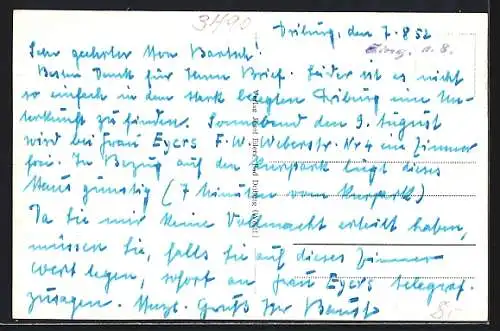 3490
Driburg, den 7.8.52
Sehr geehrter Herr Bartsch!
Besten Dank für Ihren Brief. Leider ist es nicht
so einfach in dem stark belegten Driburg eine Un-
terkunft zu finden. Sonnabend den 9. August
wird bei Frau Eyers F.W. Weberstr. Nr 4 ein Zimmer
frei. In Bezug auf den Kurpark liegt dieses
Haus günstig (7 Minuten vom Kurpark)
Da Sie mir keine Vollmacht erteilt haben,
müssen Sie, falls Sie auf dieses Zimmer
wert legen, sofort an Frau Eyers telegraf.
zusagen. Herzl. Gruß Ihr